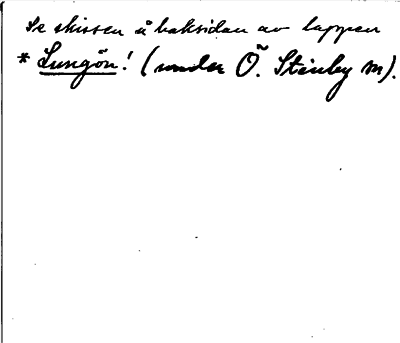 Se skissen å baksidan av lappen
* Lungön! (under Ö. Stenby m).